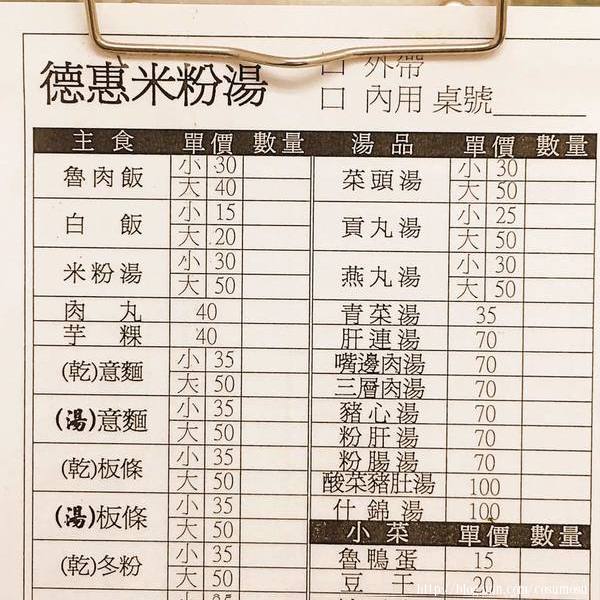 德惠米粉湯
口 外帶
口 內用 桌號
主食 單價 數量
魯肉飯 小 30
大 40
白飯 小 15
大 20
米粉湯 小 30
大 50
肉丸 40
芋粿 40
(乾)意麵 小 35
大 50
(湯)意麵 小 35
大 50
(乾)板條 小 35
大 50
(湯)板條 小 35
大 50
(乾)冬粉 小 35
大 50
湯品 單價 數量
菜頭湯 小 30
大 50
貢丸湯 小 25
大 50
燕丸湯 小 30
大 50
青菜湯 35
肝連湯 70
嘴邊肉湯 70
三層肉湯 70
豬心湯 70
粉肝湯 70
粉腸湯 70
酸菜豬肚湯 100
什錦湯 100
小菜 單價 數量
魯鴨蛋 15
豆干 20